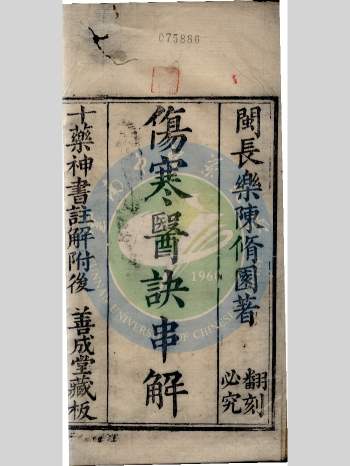 075886
閩長樂陳脩園著
翻刻必究
傷寒醫訣串解
十藥神書註解附後 善成堂藏板